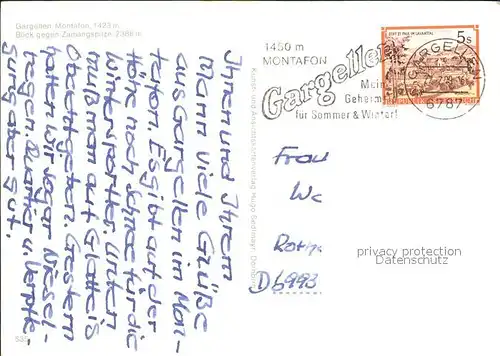 Gargellen Montafon, 1423 m
Blick gegen Zamangspitze 2386 m
Ihnen und Ihrem
Mann viele Grüße
aus Gargellen im Mon-
tafon. Es gibt auf der
Höhe noch Schnee für die
Wintersportler. Unten
muß man auf Glatteis
Obacht geben. Gestern
hatten wir sogar Niesel-
regen. Quartier u. Verpfle-
gung aber gut.
1450 m
MONTAFON
Gargellen
Mein
Geheim
für Sommer & Winter!
STIFT ST. PAUL IM LAVANTTAL
5 S
GARGELLEN
6787
Frau
We
Roth
D 6993
privacy protection
Datenschutz